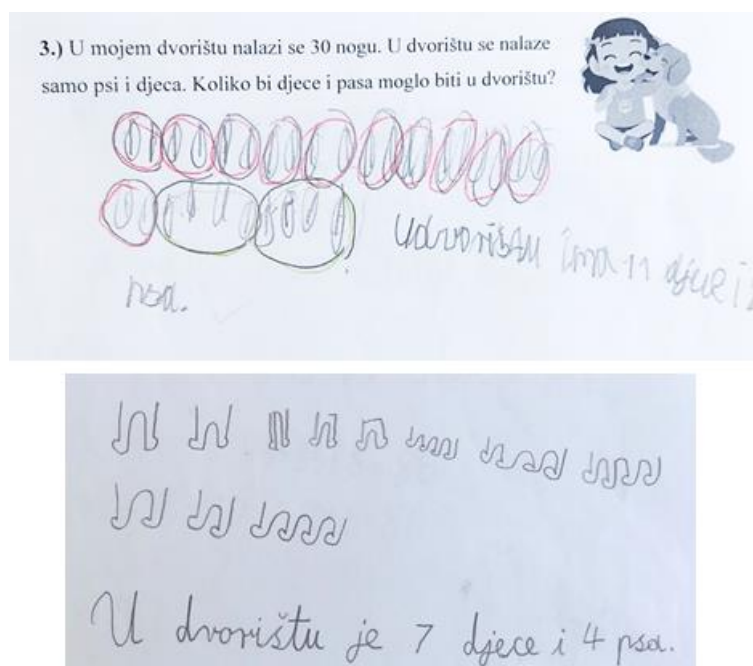 3.) U mojem dvorištu nalazi se 30 nogu. U dvorištu se nalaze
samo psi i djeca. Koliko bi djece i pasa moglo biti u dvorištu?
U dvorištu ima 11 djece i
psa.
U dvorištu je 7 djece i 4 psa.